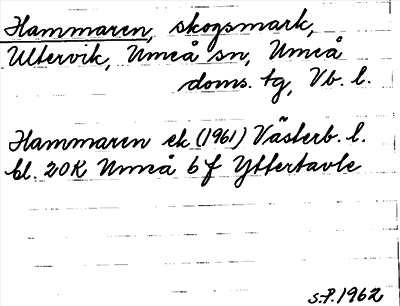 Hammaren, skogsmark,
Ultervik, Umeå sn, Umeå
doms. tg, Vb. l.
Hammaren ek (1961) Västerb. l.
bl. 20K Umeå 6 f Yttertavle
S.P. 1962